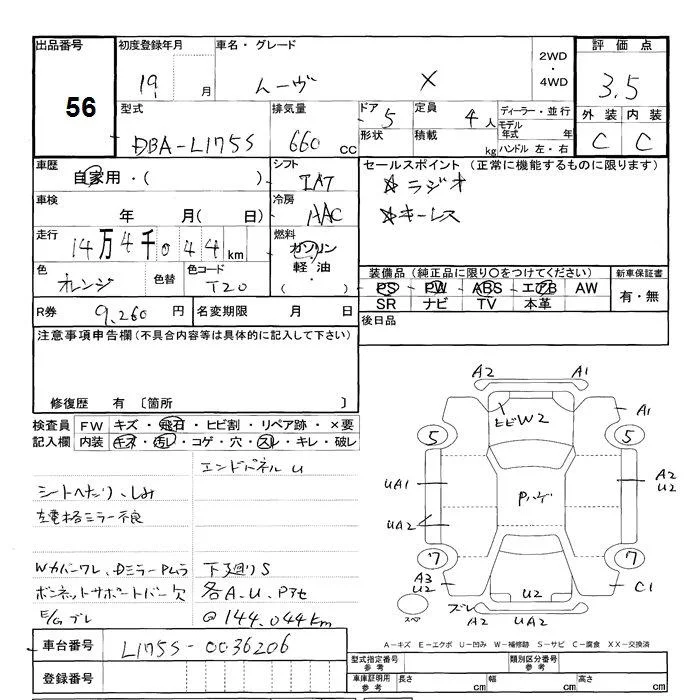 出品番号 初度登録年月 車名・グレード 2WD ・ 4WD 評価点
56 19 月 ムーヴ X 3.5
型式 排気量 ドア 5 定員 4人 ディーラー・並行 外装 内装
DBA-L175S 660 cc 形状 積載 kg モデル年式 年 C C
ハンドル 左・右
車歴 自家用・( ) シフト IAT セールスポイント (正常に機能するものに限ります)
車検 年 月( 日) 冷房 AAC ☆ラジオ
☆キーレス
走行 14万4千044km 燃料 ガソリン 軽油・( )
色 オレンジ 色替 色コード T20
装備品 (純正品に限り○をつけてください) 新車保証書
PS PW ABS エアB AW 有・無
SR ナビ TV 本革
R券 9,260 円 名変期限 月 日 後日品
注意事項申告欄(不具合内容等は具体的に記入して下さい)
修復歴 有 〔箇所 〕
検査員 FW キズ・飛石・ヒビ割・リペア跡・×要
記入欄 内装 キズ・汚レ・コゲ・穴・スレ・キレ・破レ
エンドパネルU
シートヘたり、しみ
左電格ミラー不良
Wカバーワレ、Dミラー Pムラ 下廻りS
ボンネットサポートバー欠 各A.U.Pアセ
E/Gブレ @144,044km
A2 A1
ヒビW2 A1
5 5
UA1 A2
U2
Pハゲ
UA2 A2
U2
7 7
A3
U2 U2 C1
スペア ズレ A2 UA2
A−キズ E−エクボ U−凹み W−補修跡 S−サビ C−腐食 XX−交換済
車台番号 L175S-0036206
登録番号
型式指定番号 参考 類別区分番号 参考
車庫証明用 参考 長さ cm 幅 cm 高さ cm